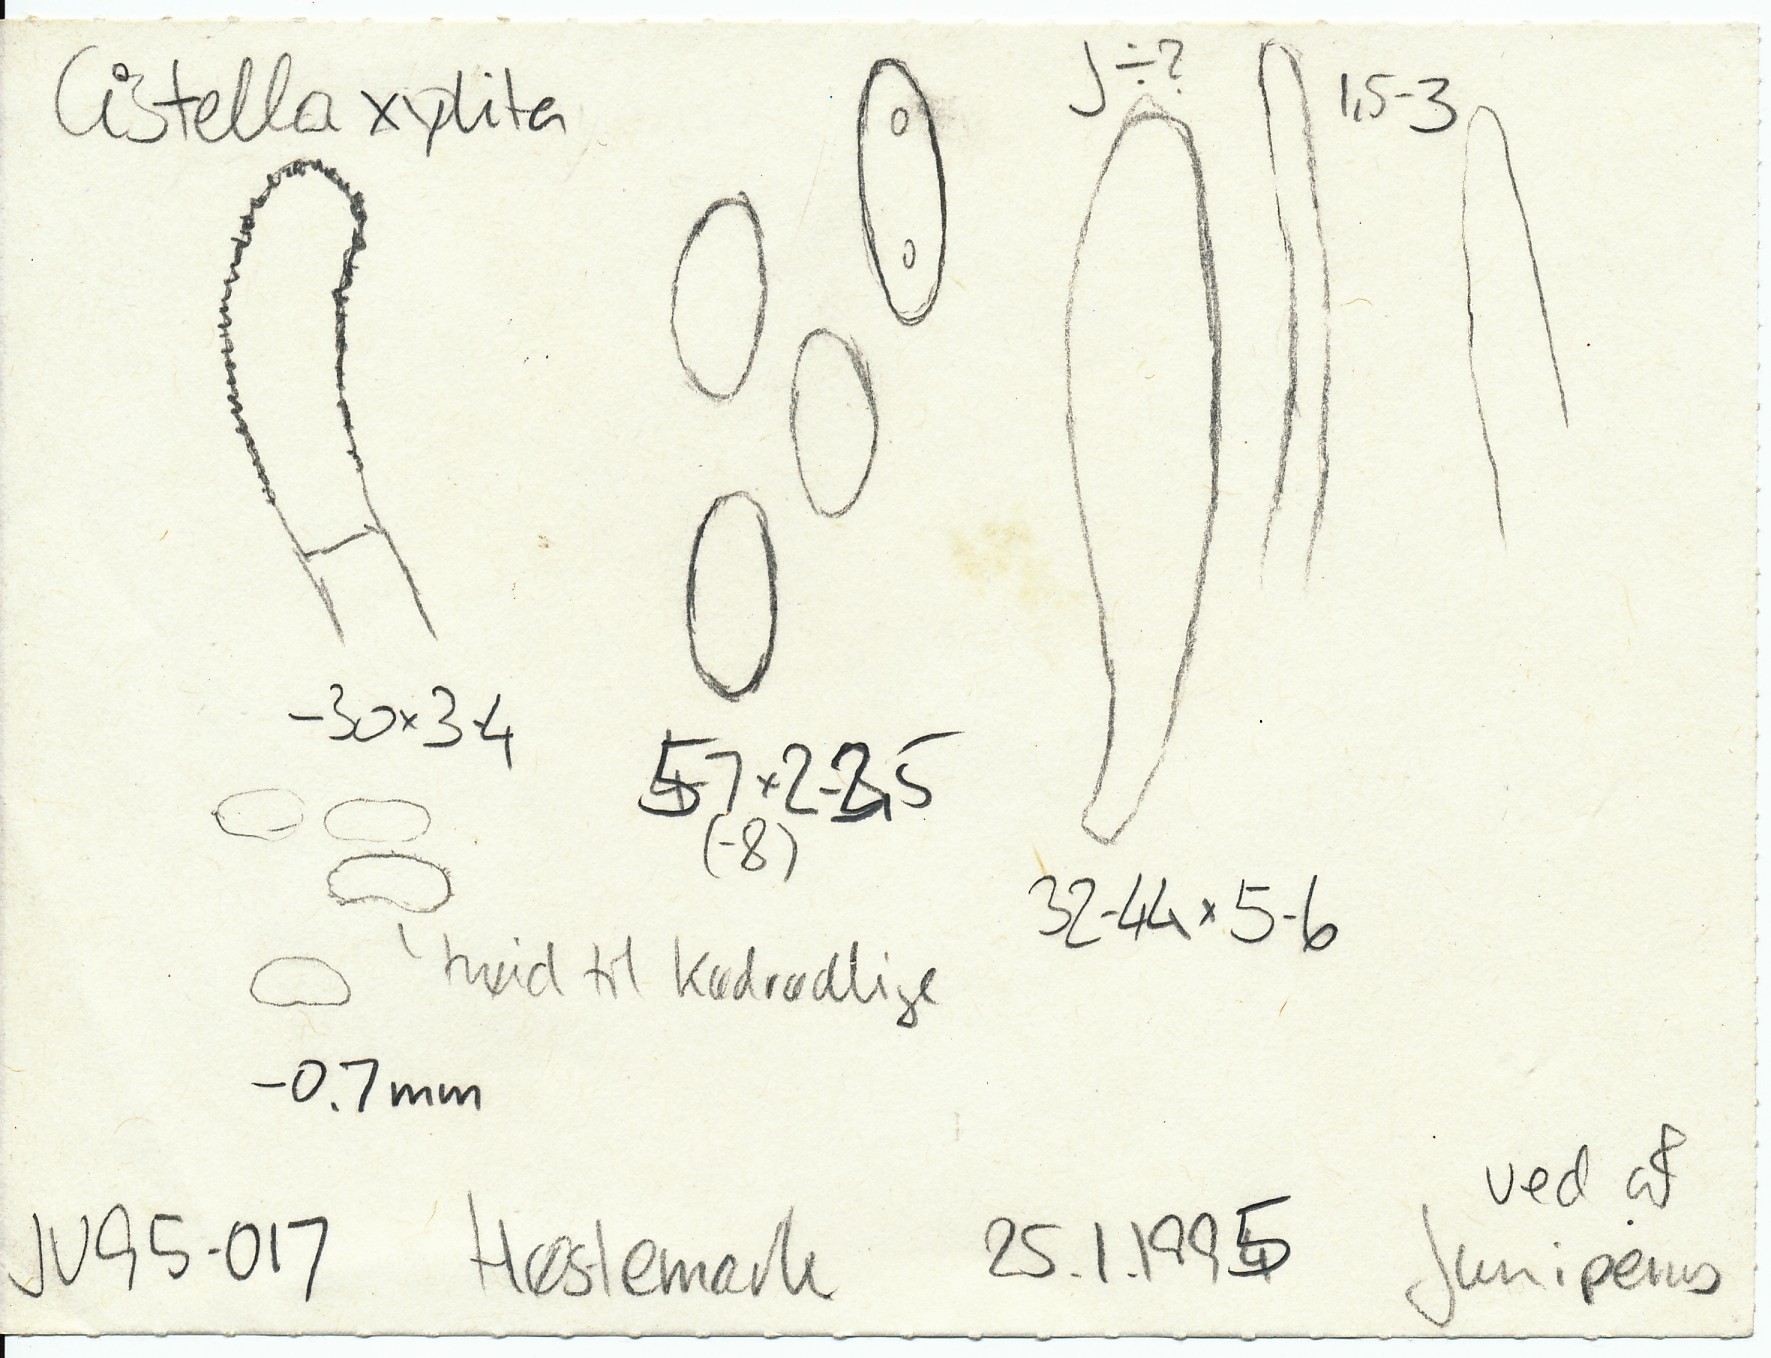 Cistella xylita
J÷?
1,5-3
-30×3-4
5-7×2-2,5
(-8)
32-44×5-6
hvid til kødrødlige
-0.7mm
ved af
JV95-017 Høstemark 25.1.1995 Juniperus